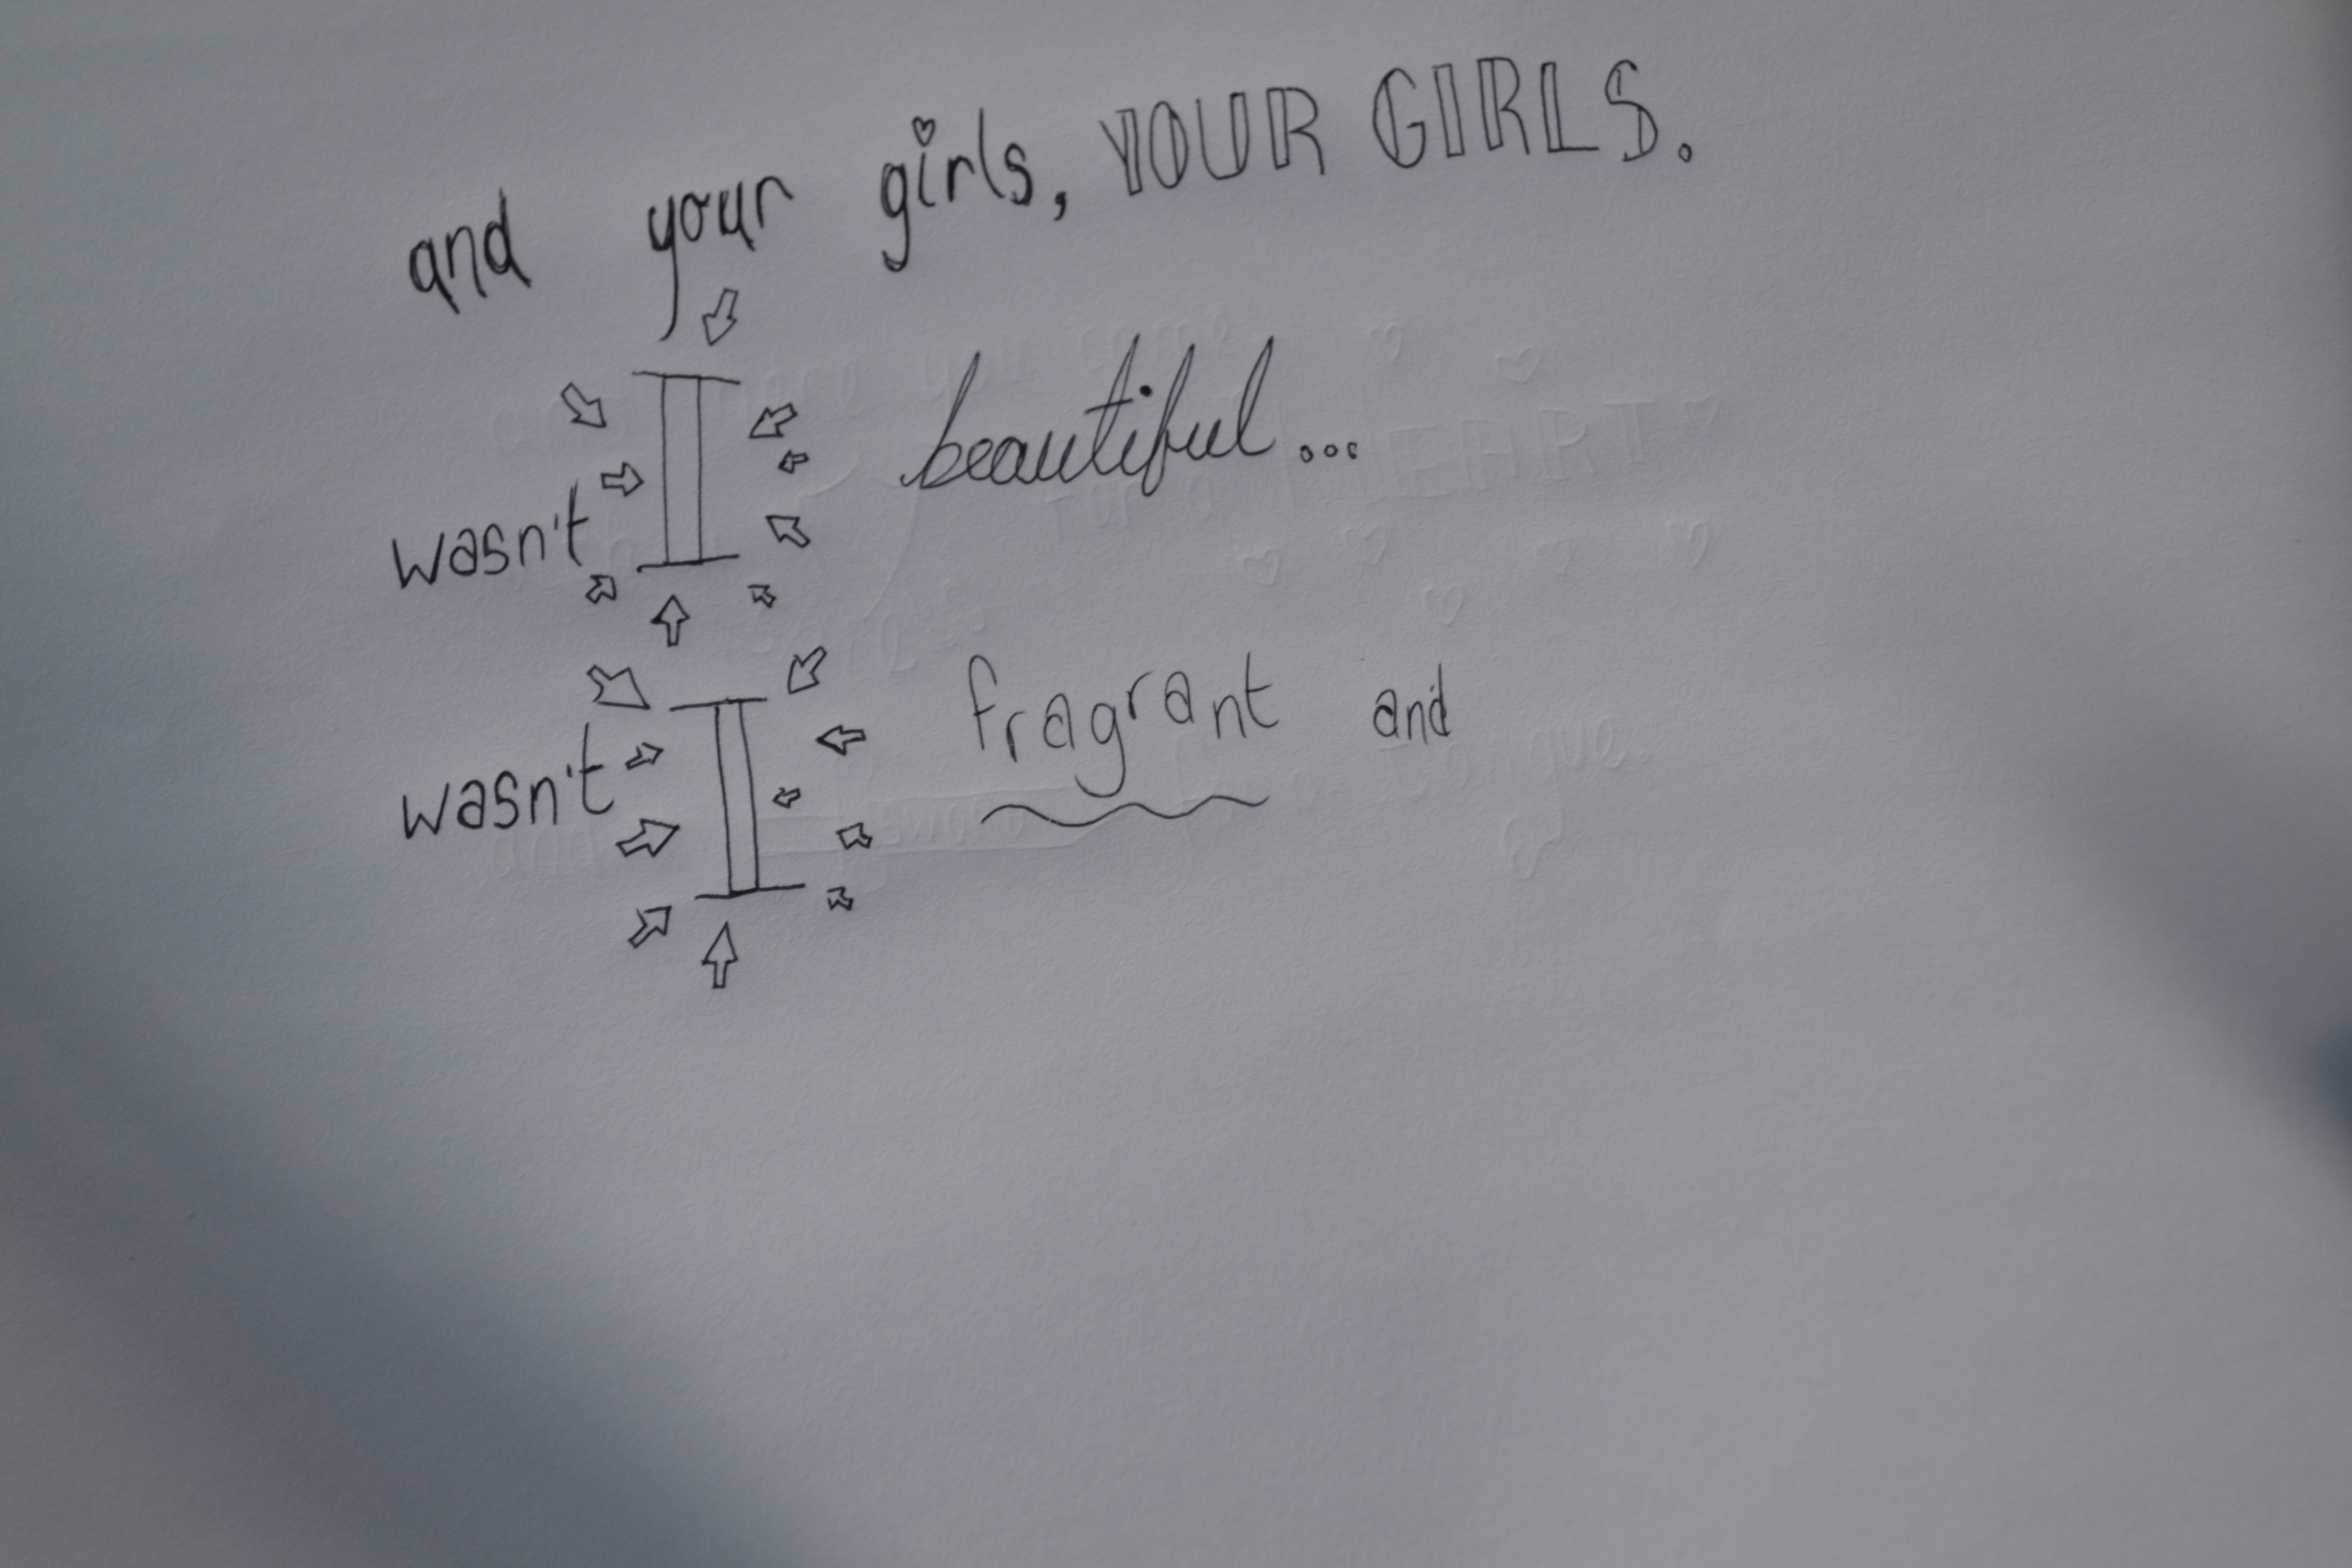 and your girls, YOUR GIRLS.
wasn't I beautiful...
wasn't I fragrant and